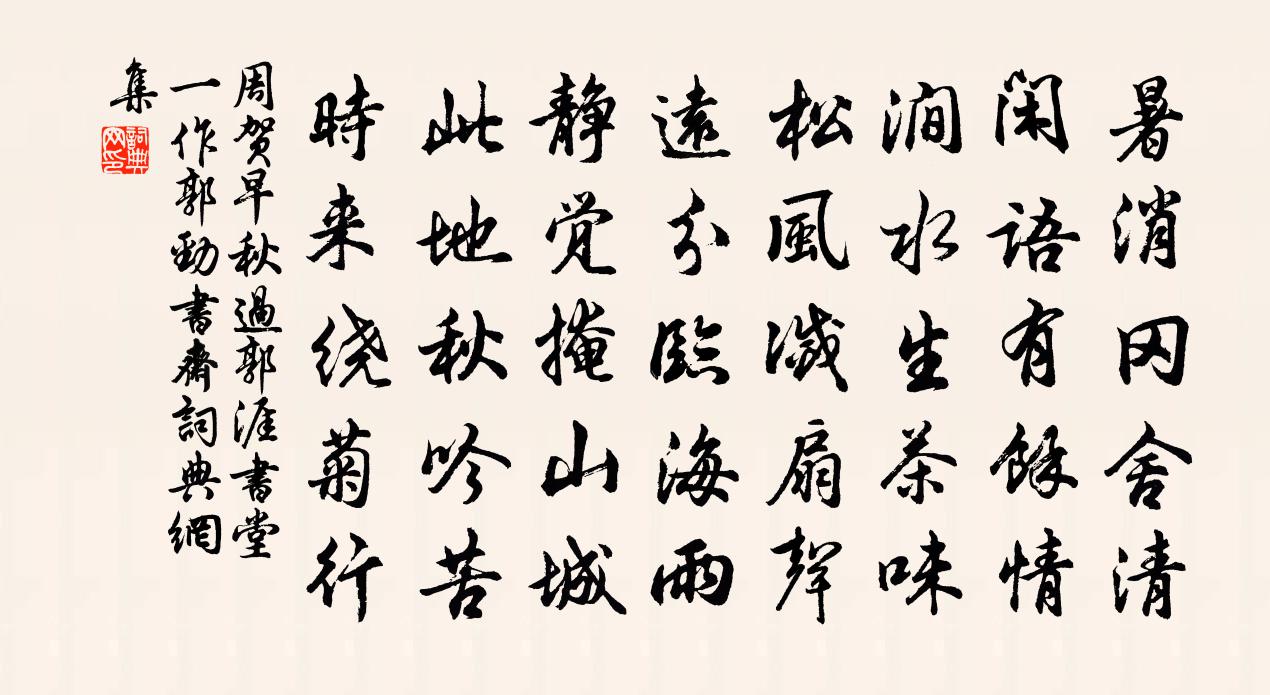 暑消冈舍清
闲语有餘情
涧水生茶味
松風滅扇聲
遠分臨海雨
静觉掩山城
此地秋吟苦
時来绕菊行
周贺早秋過郭涯書堂
一作郭勁書齋詞典網
集
詞典
网印